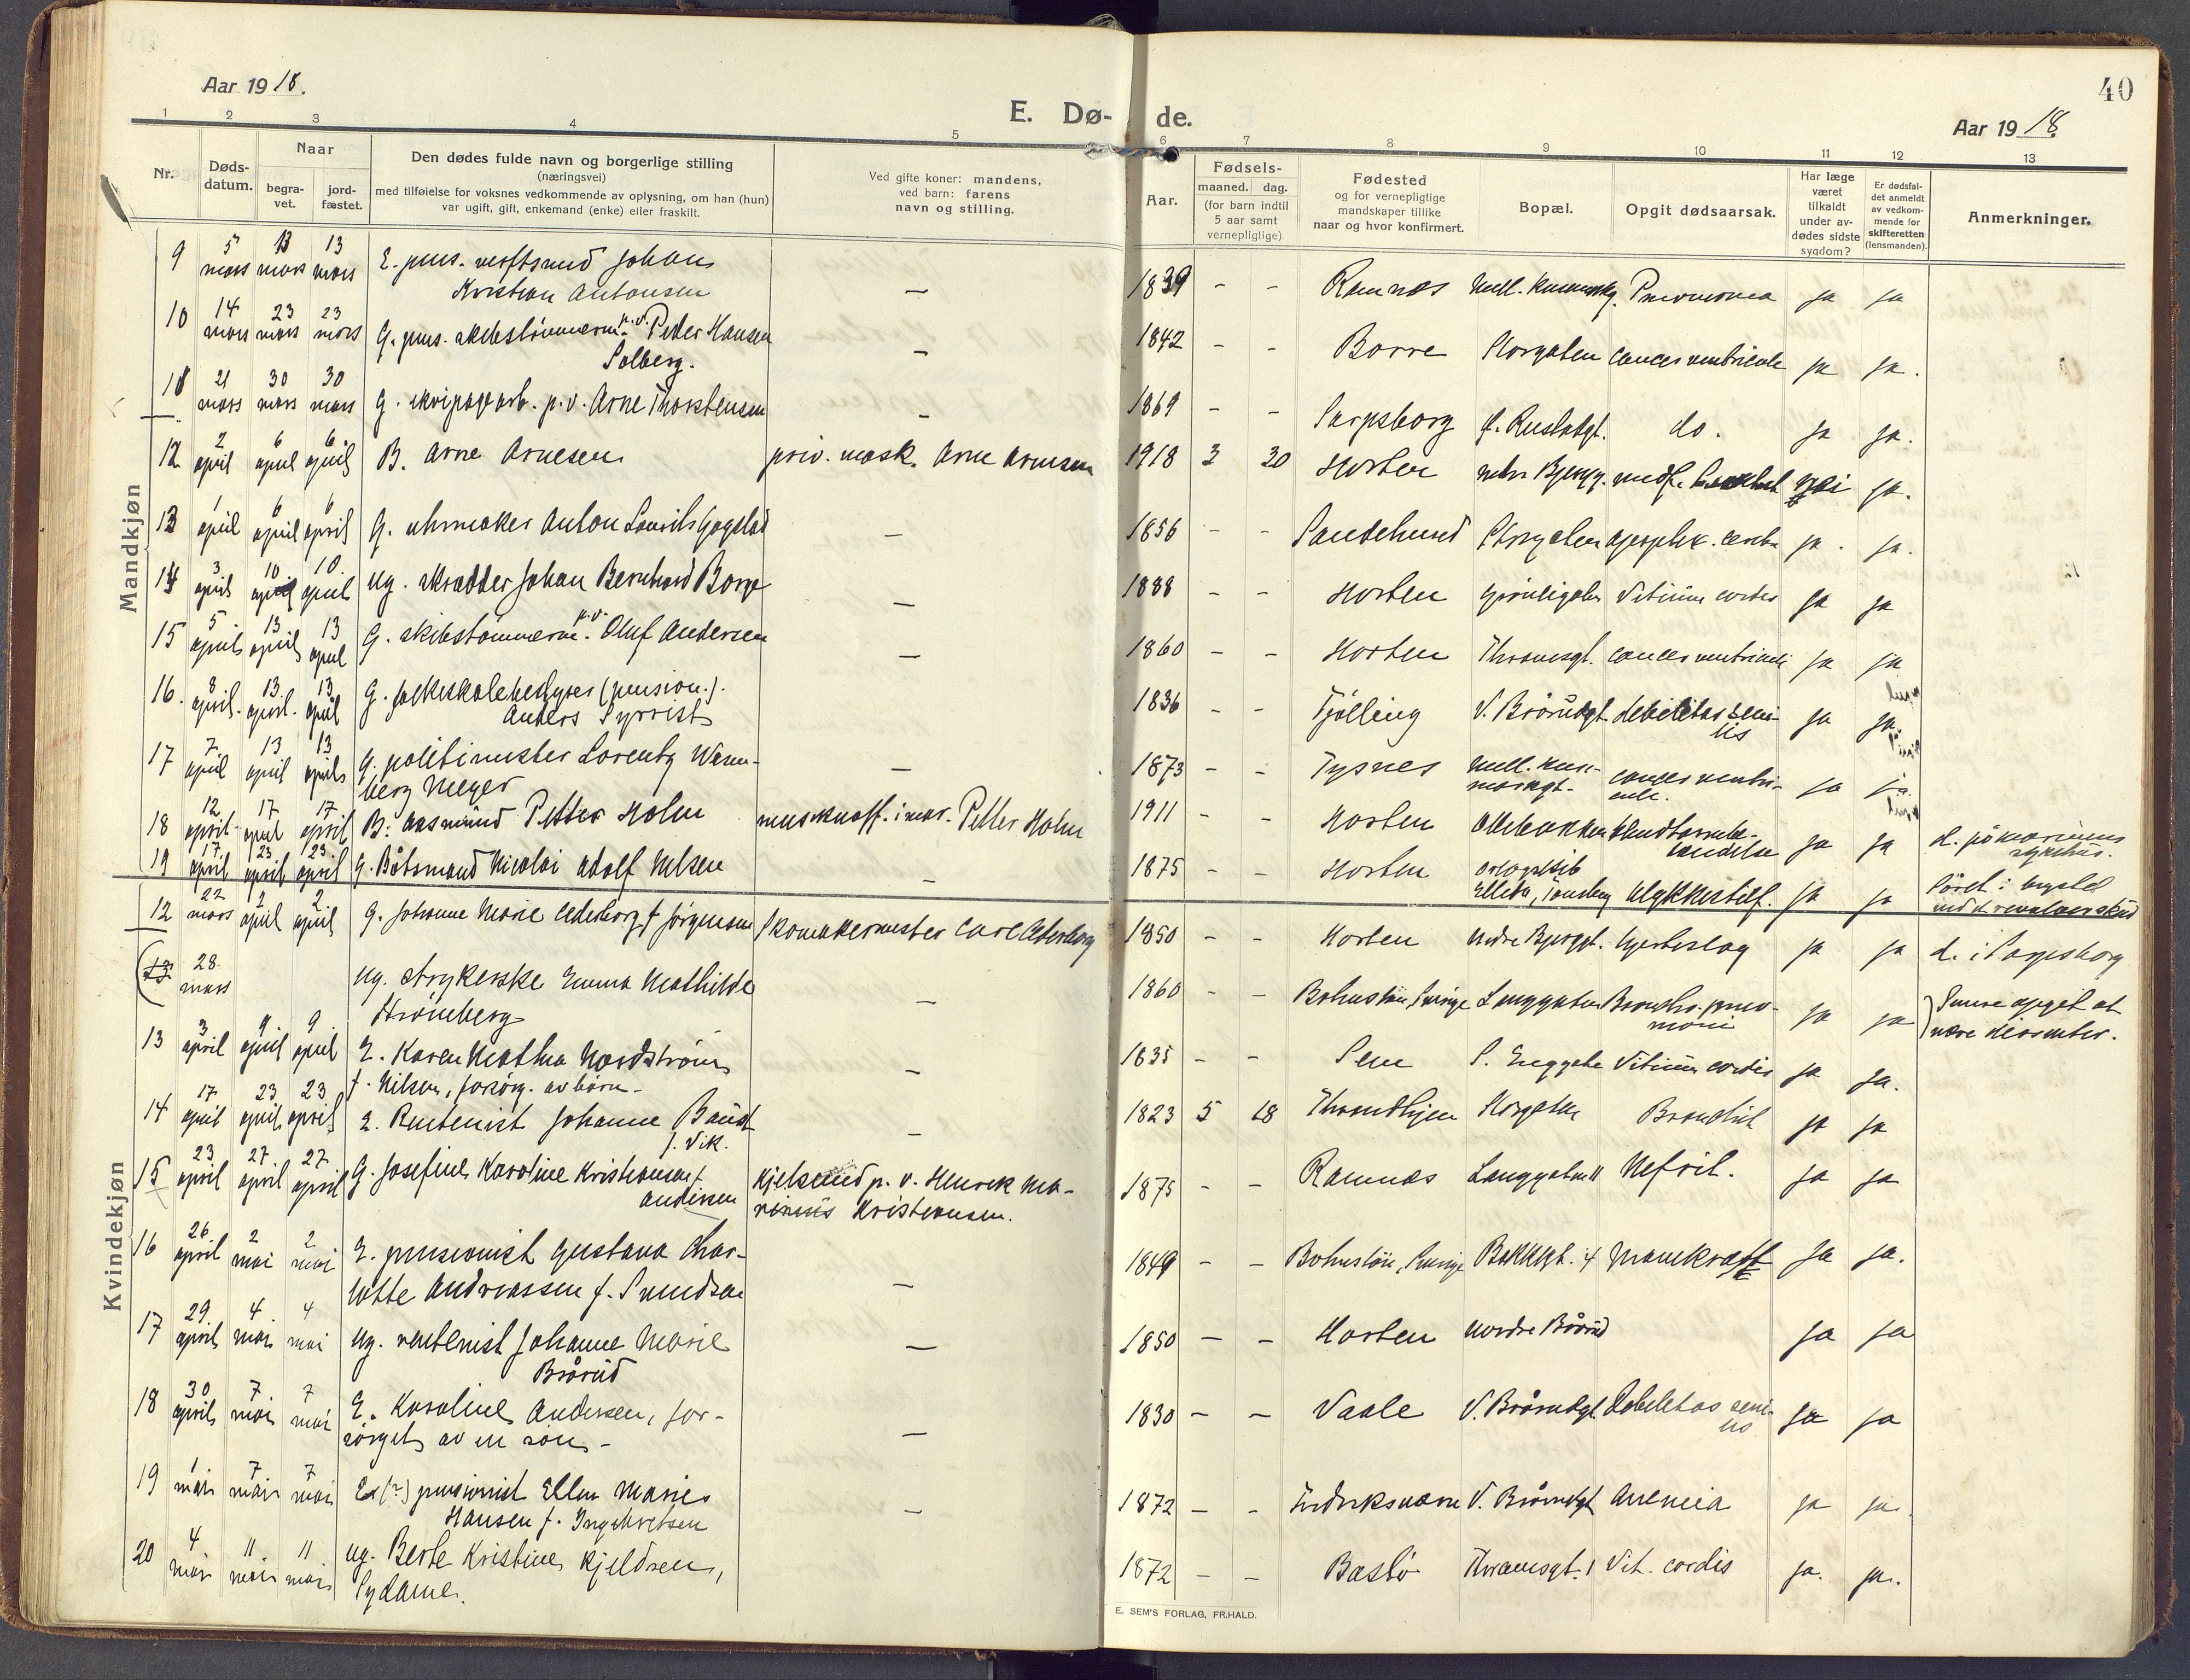 Aar 1918.
E. Dø- de.
Aar 1918.
40
1 2 3 4 5 6 7 8 9 10 11 12 13
Nr.
Døds-
datum.
Naar
begra-
vet.
jord-
fæstet.
Den dødes fulde navn og borgerlige stilling
(næringsvei)
med tilføielse for voksnes vedkommende av oplysning, om han (hun)
var ugift, gift, enkemand (enke) eller fraskilt.
Ved gifte koner: mandens,
ved barn: farens
navn og stilling.
Aar.
Fødsels-
maaned. dag.
(for barn indtil
5 aar samt
vernepligtige)
Fødested
og for vernepligtige
mandskaper tillike
naar og hvor konfirmert.
Bopæl.
Opgit dødsaarsak.
Har læge
været
tilkaldt
under av-
dødes sidste
sygdom?
Er dødsfal-
det anmeldt
av vedkom-
mende for
skifteretten
(lensmanden).
Anmerkninger.
Mandkjøn
9 5 mars 13 mars 13 mars E. pens. verftsmd Johan
Kristian Antonsen — 1839 - - Ramnes Pneumonia ja ja
10 14 mars 23 mars 23 mars G. pens. skibstømmerm. p.v. Peder Hansen
Solberg. — 1842 - - Borre Storgaten cancer ventricule ja ja.
11 21 mars 30 mars 30 mars G. p.v. Arne Thorstensen — 1869 - - Sarpsborg f. Rustadgt. do. ja ja.
12 2 april 6 april 6 april B. Arne Arnesen priv. mask. Arne Arnesen 1918 3 30 Horten medf. nei ja.
13 1 april 6 april 6 april G. uhrmaker Anton Lauritz Gogstad — 1856 - - Sandehered Storgaten apoplex. cerebr. ja. ja.
14 3 april 10 april 10 april ug. skrædder Johan Bernhard Borge — 1888 - - Horten Vitium cordis ja ja
15 5 april 13 april 13 april G. skibstømmerm. p.v. Oluf Andersen — 1860 - - Horten Thranesgt. cancer ventriculi ja ja
16. 8 april. 13. april. 13 april G. folkeskolebestyrer (pension.).
Anders Syrrist — 1836 - - Tjølling V. Brårudgt. debilitas seni-
lis ja ja.
17 7 april 13 april 13 april G. politimester Lorentz Wesen-
berg Meyer — 1873 - - Tysnes cancer ventri-
cule. ja ja.
18 12 april 17 april 17 april B. Aasmund Petter Holm Petter Holm 1911 - - Horten Ollebakken Blindtarmbe-
tændelse ja ja d. på marinens
sykehus.
19 17 april 23 april 23 april G. Båtsmand Nicolai Adolf Nilsen — 1875 - - Horten
Ellida, Tønsberg Ulykkestilf. ja ja Såret i brystet
ved et revolverskud
Kvindekjøn
12 22 mars 2 april 2 april G. Johanne Marie Cederborg f. Jørgensen Skomakermester Carl Cederborg 1850 - - Horten Nedre Bjerggt. Hjerteslag ja ja d. i Sarpsborg
(13 28 mars ug. strykerske Emma Mathilde
Strömberg — 1860 - - Bohuslän, Sverige Langgaten Broncho-pneu-
moni ja ja Senere opgit at
være dissenter.
13 3 april 9 april 9 april E. Karen Mathea Nordström
f. Nilsen, forsørg. av børn — 1835 - - Sem S. Enggate Vitium cordis ja ja.
14 17 april 23 april 23 april E. Rentenist Johanne
f. Vik. — 1823 5 18 Throndhjem Storgaten Bronchit ja ja
15 23 april 27 april 27 april G. Josefine Karoline Kristiansen f.
Andersen Kjelsmed p.v. Henrik Ma-
rinius Kristiansen. 1875 - - Ramnæs Langgaten 11 Nefrit. ja ja
16 26 april 2 mai 2 mai E. pensionist Gustava Char-
lotte Andreassen f. Svendsen — 1849 - - Bohuslän, Sverige Bakkegt. 4 Marekraft ja ja.
17 29 april 4 mai 4 mai ug. rentenist Johanne Marie
Brårud — 1850 - - Horten Nordre Brårud ja ja
18 30 april 7 mai 7 mai E. Karoline Andersen, for-
sørget av en søn — 1830 - - Vaale V. Brårudgt. Debelitas seni-
lis ja ja
19 1 mai 7 mai 7 mai E (?) pensionist Ellen Marie
Hansen f. Ingebretsen — 1872 - - Fredriksværn V. Brårudgt. Anemia ja ja.
20 4 mai 11 mai 11 mai ug. Berte Kristine Kjeldsen,
Sydame. 1872 - - Bastø Thranesgt. 1 Vit. cordis ja. ja.
E. SEM'S FORLAG, FR.HALD.